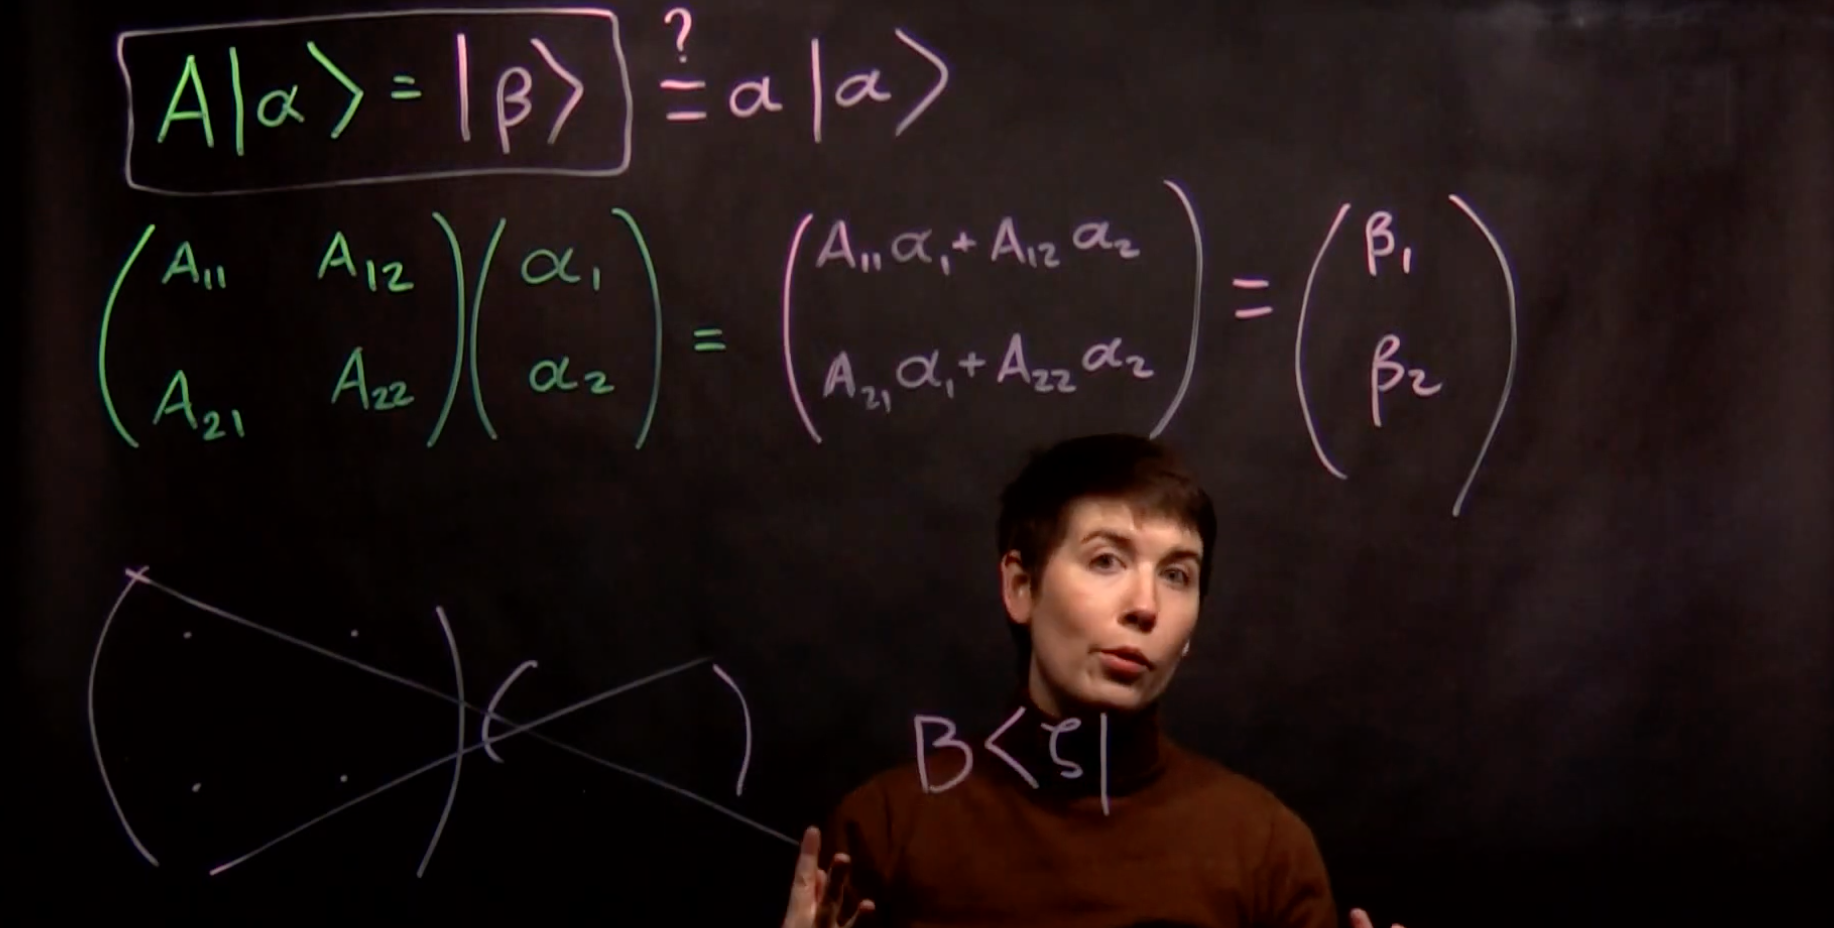 A|α⟩ = |β⟩ ?= a|α⟩
(A₁₁ A₁₂ A₂₁ A₂₂)(α₁ α₂) = (A₁₁α₁+A₁₂α₂ A₂₁α₁+A₂₂α₂) ≡ (β₁ β₂)
B⟨ζ|